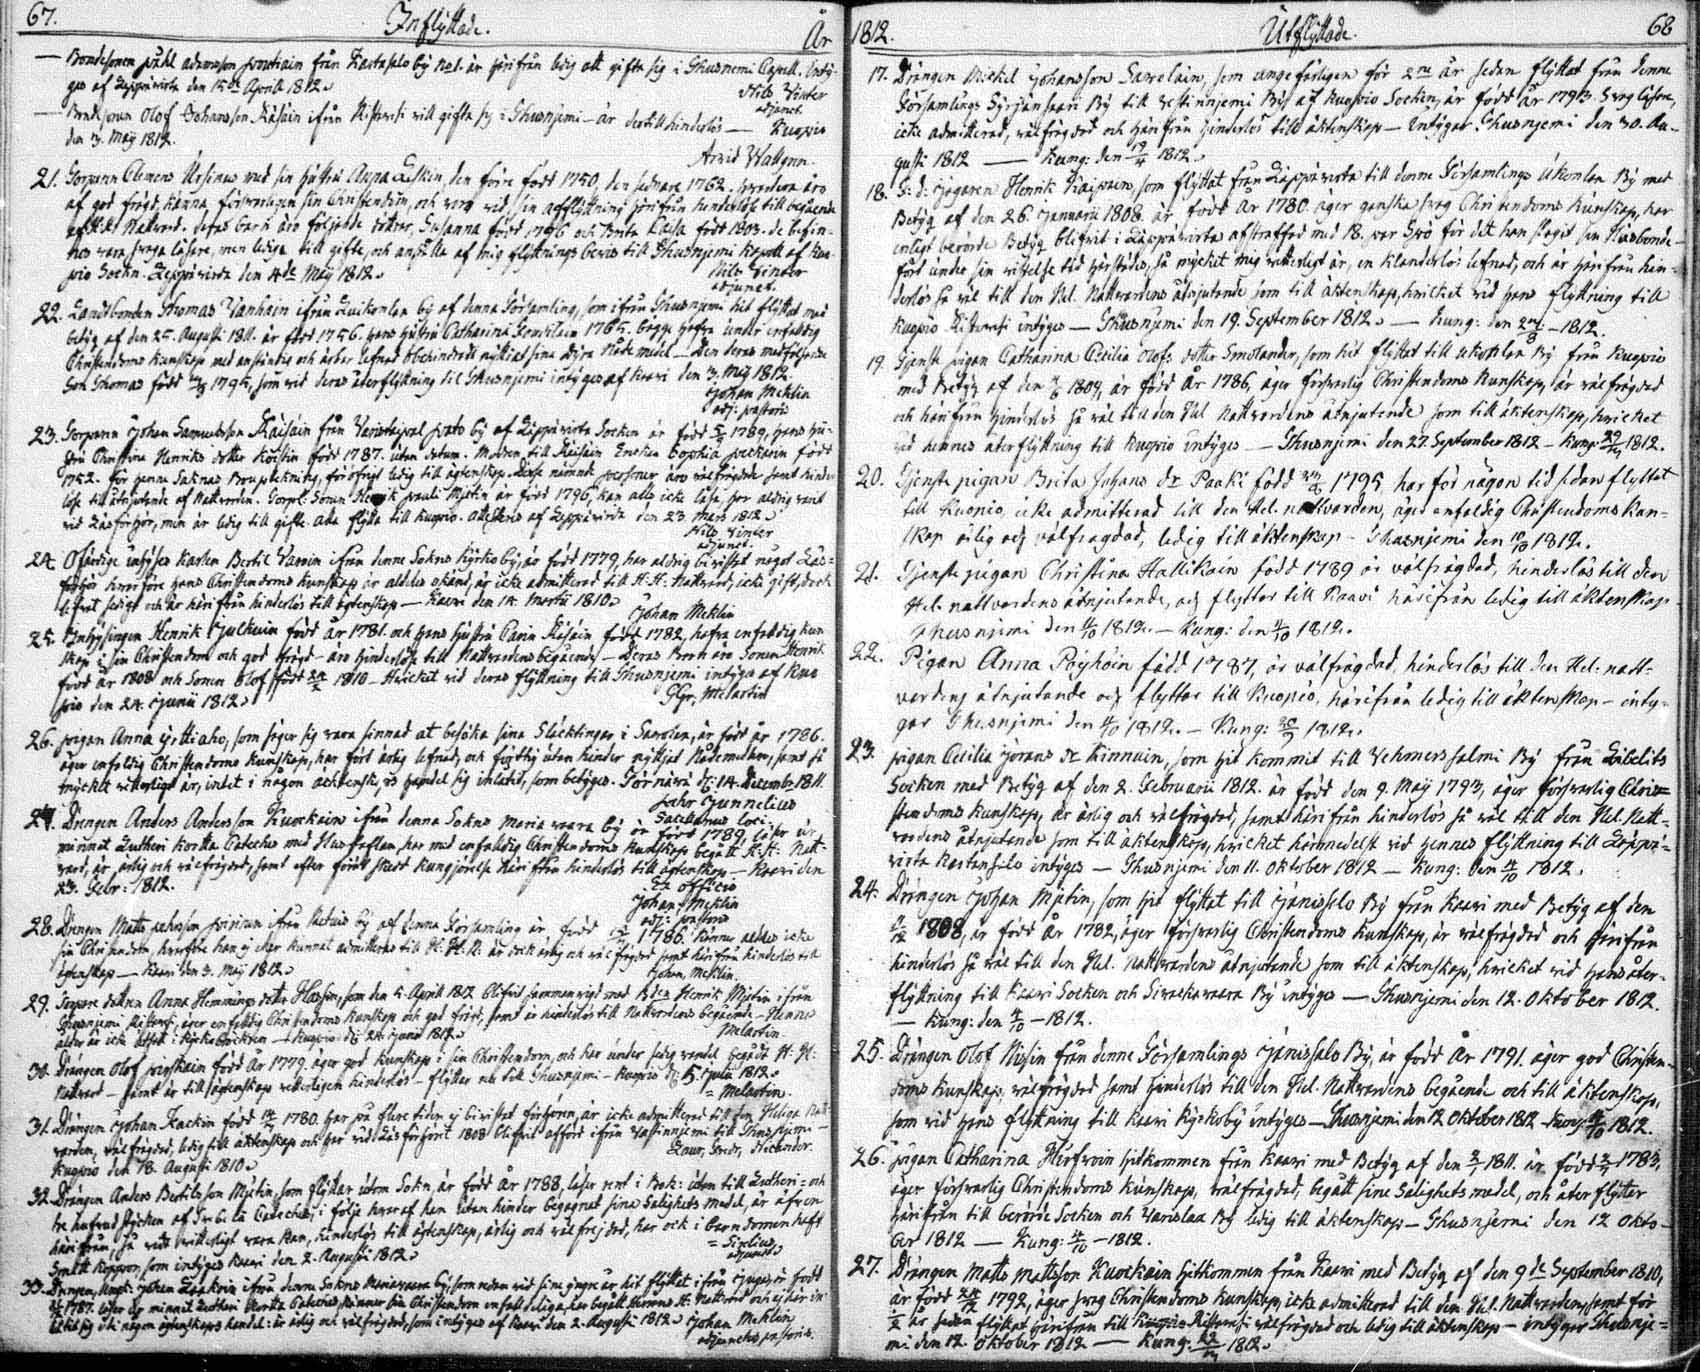 67. Inflyttade. År
— Bondesonen påhl adamsson från Kartasalo by No 1. är härifrån ledig att gifta sig i Thusnjemi Capell. Inty-
gas af Leppävirta den 15de Aprill 1812.
Nils Winter
adjunct.
— Bondsonen Olof Johansson Räsäin ifrån Ristavesi vill gifta sig i Thusnjemi — är dertill hinderlös — Kuopio
den 3. Maij 1812.
Arvid Wallgren.
21. Torparen Clemens Ursinus med sin hustru Anna Leskin, den förre född 1750, den sednare 1762. hvardera äro
af god frägd känna försvarligen sin Christendom, och vara vid sin afflyttning härifrån hinderlöse till begående
af H: H: Nattvard. deras barn äro följande döttrar, Susanna född 1796 och Brita Caisa född 1803. de befin-
nas vara svaga läsare, men lediga till gifte, och anställe af mig flyttnings bevis till Thusnjemi Capell af Kuo-
pio Sockn. Leppävirta den 4de Maij 1812.
Nils Winter
adjunct.
22. Landbonden Thomas Vanhain ifrån Luikonlax by af denna Församling, som ifrån Thusnjemi hit flyttat med
betyg af den 25. Augusti 1811. är född 1756. hans hustru Catharina 1765. bägge hafva under enfaldig
Christendoms kunskap med anständig och ärbar lefnad obehindradt nyttjat sina dyra Nåde medel — Den deras medföljande
Son Thomas född 1795, som vid deras återflyttning til Thusnjemi intygas af Kaavi den 3. Maij 1812.
Johan Meklin
adj: pastoris
23. Torparen Johan Samuelsson Räisäin från by af Leppävirta Socken är född 1789, hans hu-
stru Christina Henriks dotter född 1787. utan datum. Modren till Räisäin Enckan Sophia född
1752. för henne saknas Brupteckning, föröfrigt ledig till äktenskap. Desse nämnde personer äro välfrägdade samt hinder-
löse till åtnjutande af Nattvarden. Henrik pauli Mjetin är född 1796, kan alls icke läsa, har aldrig varit
vid Läsförhör, men är ledig till gifte. alla flytta till Kuopio. attesteras af Leppävirta den 23. Mars 1812.
Nils Winter
adjunct.
24. Karlen Bertil ifrån denna Sokns Kyrko by, är född 1779, har aldrig bivistat något Läs-
förhör hvarföre hans Christendoms kunskap är aldeles okänd, är icke admitterad till H: H: Nattvard, icke gift, dock
härifrån hinderlös till äktenskap — Kaavi den 14. Martii 1810.
Johan Meklin
25. Inhysingen Henrik Julkuin född år 1781. och hans hustru Carin Räsäin född 1782, hafva enfaldig kun
skap i sin Christendom och god frägd — äro hinderlöse till Nattvardens begående — Deras Barn äro Sonen Henrik
född år 1808 och Sonen Olof född 1810 — Hvilket vid deras flyttning till Thusnjemi intygas af Kuo
pio den 24. Junii 1812.
Melartin
26. pigan Anna Yrttiaho, som säger sig vara sinnad at besöka sina Släcktingar i Savolax, är född år 1786.
äger enfaldig Christendoms kunskap, har fört ärlig lefnad, och förthy utan hinder nyttjat Nådemedlen, samt så
mycket vitterligt är, intet i någon acktenskaps handel sig inlåtit, som betyges. Torneå d: 14. December 1811.
Lahr Junnelius
Sacellanus loci.
27. Drengen Anders Andersson Kuorkain ifrån denna Sokns Maria vaara by är född 1789, läser ur
minnet Lutheri korta Cateches med Hustaflan, har med enfaldig Christendoms kundskap begått H: H: Natt-
vard, är ärlig och välfrägdad, samt efter förut skedt kungjörelse härifrån hinderlös till äktenskap — Kaavi den
23. Febr: 1812.
Ex officio
Johan Meklin
adj: pastoris
28. Drengen Matts ifrån by af denna Församling är född 1786. känner aldeles icke
sin Christendom, hvarföre han ej eller kunnat admitteras till H: H: N: är dock ärlig och välfrägdad samt härifrån hinderlös till
äktenskap — Kaavi den 3. Maij 1812.
Johan Meklin.
29. Torpare dottren Anna Hemmings dotter, som den 5. Aprill 1812 blifvit sammanvigd med Henrik Mjetin ifrån
Thusnjemi Ristavesi, äger enfaldig Christendoms kunskap och god frägd, samt är hinderlös till Nattvardens begående — Hennes
ålder är icke utsatt i Kyrko Boken — Kuopio d: 24. Junii 1812.
Melartin.
30. Drängen Olof född År 1779. äger god kunskap i sin Christendom, och har under ledig vandel begådt H: H:
Nattvard — samt är till äktenskap vitterligen hinderlös — flyttar nu till Thusnjemi — Kuopio d: 5. Julii 1812.
Melartin.
31. Drängen Johan Kackin född 1780. har på flere tider ej bivistat förhören, är icke admitterad till den Heliga Natt-
varden, välfrägdad, ledig till äktenskap och har vid Läsförhörit 1808 blifvit afförd ifrån till Thusnjemi —
Kuopio den 18. Augusti 1810.
32. Drängen Anders Bertilsson Mjetin, som flyttar utom Sokn, är född År 1788, läser rent i Bok: utom till Lutheri och
tre hufvud stycken af Cateches, i följe hvaraf han utan hinder begagnat sina Salighets medel, är äfven
härifrån, så vidt vitterligt vara kan, hinderlös till äktenskap, ärlig och välfrejdad, har ock i barndomen haft
Smått koppor, som intygas Kaavi den 2. Augusti 1812.
adjunct.
33. Drengen Johan ifrån denna Sokns Mariavaara by, som redan vid sine yngre år hit flyttat ifrån, är född
1787. läser ur minnet Lutheri korta Cateches, känner sin Christendom enfaldeliga, har begått H: Nattvard och ej här in
låtit sig uti någon äktenskaps handel: är ärlig och välfrägdad, som intygas af Kaavi den 2. Augusti 1812.
Johan Meklin
adjunctus pastoris.
1812. Utflyttade. 68
17. Drängen Mickel Johansson Savolain, som ungefärligen för 2ne år sedan flyttat från denna
Församlings Syrjänsaari By till Vestinnjemi By af Kuopio Socken, är född År 1793. svag läsare,
icke admitterad, välfrägdad och härifrån hinderlös till äktenskap — Intygar Thusnjemi den 30. Au-
gusti 1812 — Kung: den 1812.
18. F: d: Jägaren Henrik Kaipain, som flyttat från Läppävirta till denne Församlings Ukonlax By med
Betyg af den 26. Januarii 1808. är född År 1780. äger ganska svag Christendoms kunskap, har
enligt berörde Betyg blifvit i Läppävirta afstraffad med 18. par Spö för det han slagit sin Husbonde —
fört under sin vistelse tid härstädes, så mycket mig vitterligt är, en klanderlös lefnad, och är härifrån hin-
derlös så väl till den Hel. Nattvardens åtnjutande som till äktenskap, hvilket vid hans flyttning till
Kuopio Ristavesi intyges — Thusnjemi den 19. September 1812. — Kung: den — 1812.
19. Tjenste pigan Catharina Cecilia Olofs dotter Smolander, som hit flyttat till Ukonlax By från Kuopio
med Betyg af den 1809, är född År 1786, äger försvarlig Christendoms kunskap, är välfrägdad
och härifrån hinderlös så väl till den Hel. Nattvardens åtnjutande som till äktenskap, hvilket
vid hennes återflyttning till Kuopio intyges — Thusnjemi den 27. September 1812 — Kung: 1812.
20. Tjenste pigan Brita Johans dr Paaki född 1795 har för någon tid sedan flyttat
till Kuopio, icke admitterad till den Hel. nattvarden, äger enfaldig Christendoms kun-
skap ärlig och välfrägdad, ledig till äktenskap — Thusnjemi den 1812.
21. Tjenste pigan Christina Hallikain född 1789 är välfrägdad, hinderlös till den
Hel. nattvardens åtnjutande, och flyttar till Kaavi härifrån ledig till äktenskap —
Thusnjemi den 4/10 1812. — Kung: den 4/10 1812.
22. Pigan Anna Pöyhöin född 1787, är välfrägdad, hinderlös till den Hel. natt-
vardens åtnjutande och flyttar till Kuopio, härifrån ledig till äktenskap — inty-
gar Thusnjemi den 4/10 1812. — Kung: 1812.
23. pigan Cecilia Jörans dr Kinnuin, som hit kommit till Vehmersalmi By från Libelits
Socken med Betyg af den 2. Februarii 1812. är född den 9. Maij 1793, äger försvarlig Chris-
tendoms kunskap, är ärlig och välfrägdad, samt härifrån hinderlös så väl till den Hel. Natt-
vardens åtnjutande som till äktenskap, hvilket härmedelst vid hennes flyttning till Leppä-
virta Kartansalo intyges — Thusnjemi den 11. Oktober 1812 — Kung: den 1812.
24. Drängen Johan Mjetin, som hit flyttat till Jänissalo By från Kaavi med Betyg af den
1808, är född År 1782, äger försvarlig Christendoms kunskap, är välfrägdad och härifrån
hinderlös så väl till den Hel. Nattvardens åtnjutande som till äktenskap, hvilket vid hans åter-
flyttning till Kaavi Socken och Sivackavaara By intyges — Thusnjemi den 12. Oktober 1812.
— Kung: den — 1812.
25. Drängen Olof Nissin från denne Församlings Jänissalo By, är född År 1791. äger god Christen-
doms kunskap, välfrägdad samt hinderlös till den Hel. Nattvardens begående och till äktenskap,
som vid hans flyttning till Kaavi Kyrkoby intyges — Thusnjemi den 12 Oktober 1812 — Kung: 1812.
26. pigan Catharina Hirfvoin hitkommen från Kaavi med Betyg af den 1811. är född 1783,
äger försvarlig Christendoms kunskap, välfrägdad, begått sine Salighets medel, och återflyttar
härifrån till berörde Socken och Varislax By ledig till äktenskap — Thusnjemi den 12 Okto-
ber 1812 — Kung: — 1812.
27. Drängen Matts Mattsson Kuorkain hitkommen från Kaavi med Betyg af den 9de September 1810,
är född 1792, äger svag Christendoms kunskap, icke admitterad till den Hel. Nattvarden, samt för
år sedan flyttat härifrån till Ristavesi välfrägdad och ledig till äktenskap — intygar Thusnje-
mi den 12. Oktober 1812 — Kung: 1812.